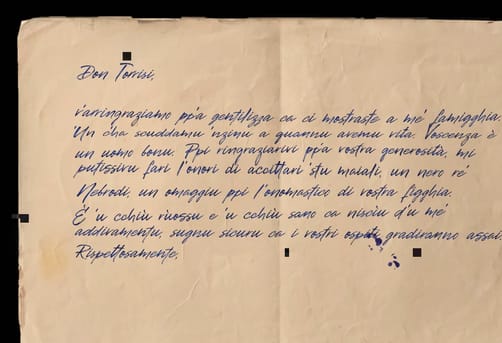 Don Torrisi,
v'arringraziamo pp'a gentilizza ca ci mostraste a me' famigghia.
Un cho scuddamu 'nzinu a quannu avemu vita. Voscenza è
un uomo bonu. Ppi ringraziarivi pp'a vostra generosità, mi
putissivu fari l'onori di accittari 'stu maiali, un nero re'
Nebrodi, un omaggiu ppi l'onomastico di vostra figghia.
È 'u cchiù ruossu e 'u cchiù sano ca nisciu d'u me'
addivamentu, sugnu sicuru ca i vostri ospiti gradiranno assai.
Rispettosamente,